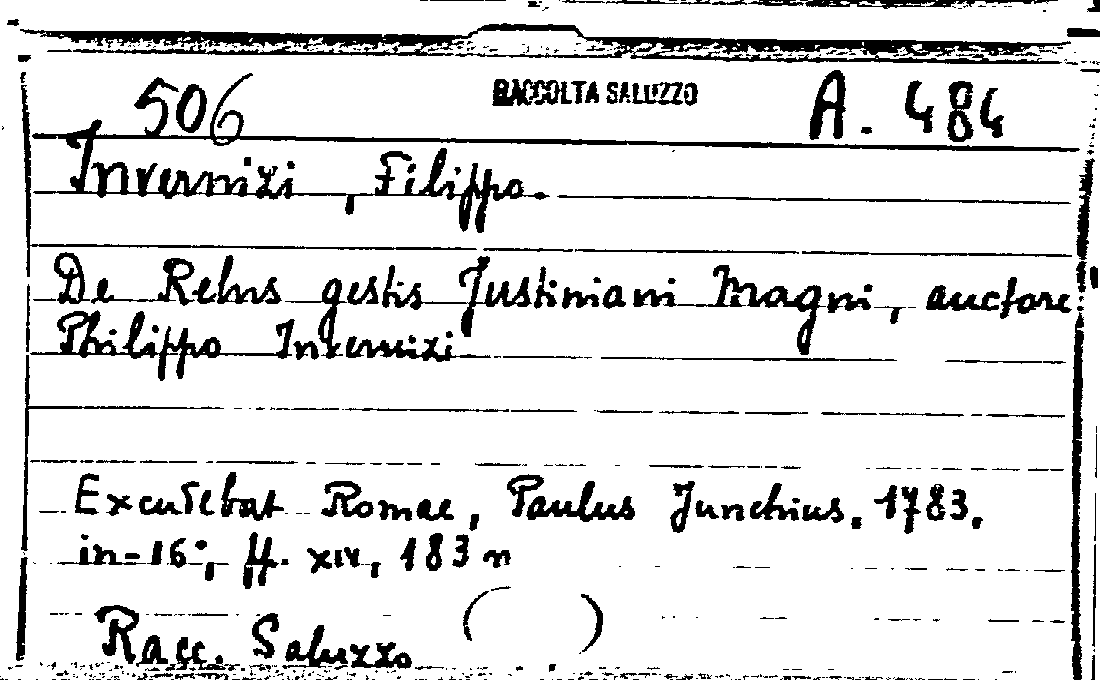 506 RACCOLTA SALUZZO A. 484
Invernizi, Filippo.
De Rebus gestis Justiniani Magni, auctore
Philippo Invernizi
Excudebat Romae, Paulus Junchius, 1783.
in-16°, ff. XIV, 183 n
Racc. Saluzzo ( )